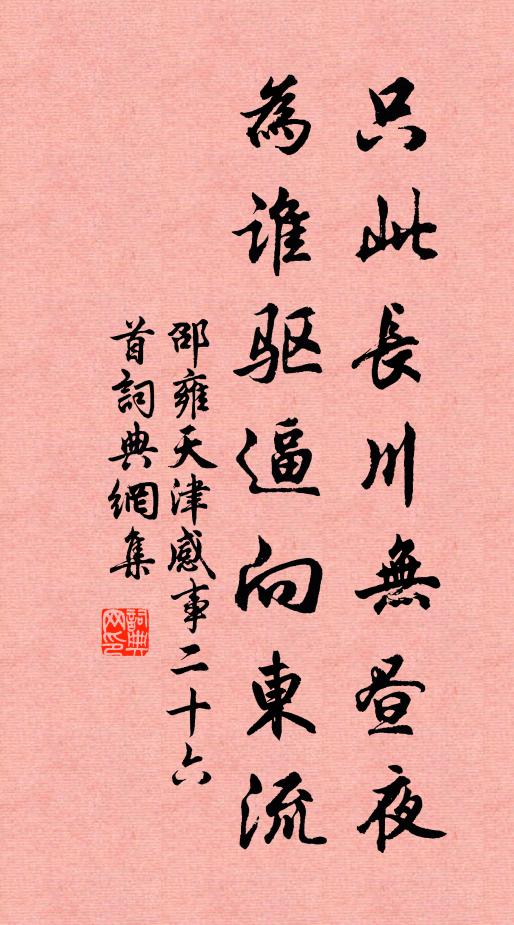 只此長川無昼夜
為谁驱逼向東流
邵雍天津感事二十六
首詞典網集
詞典
网印